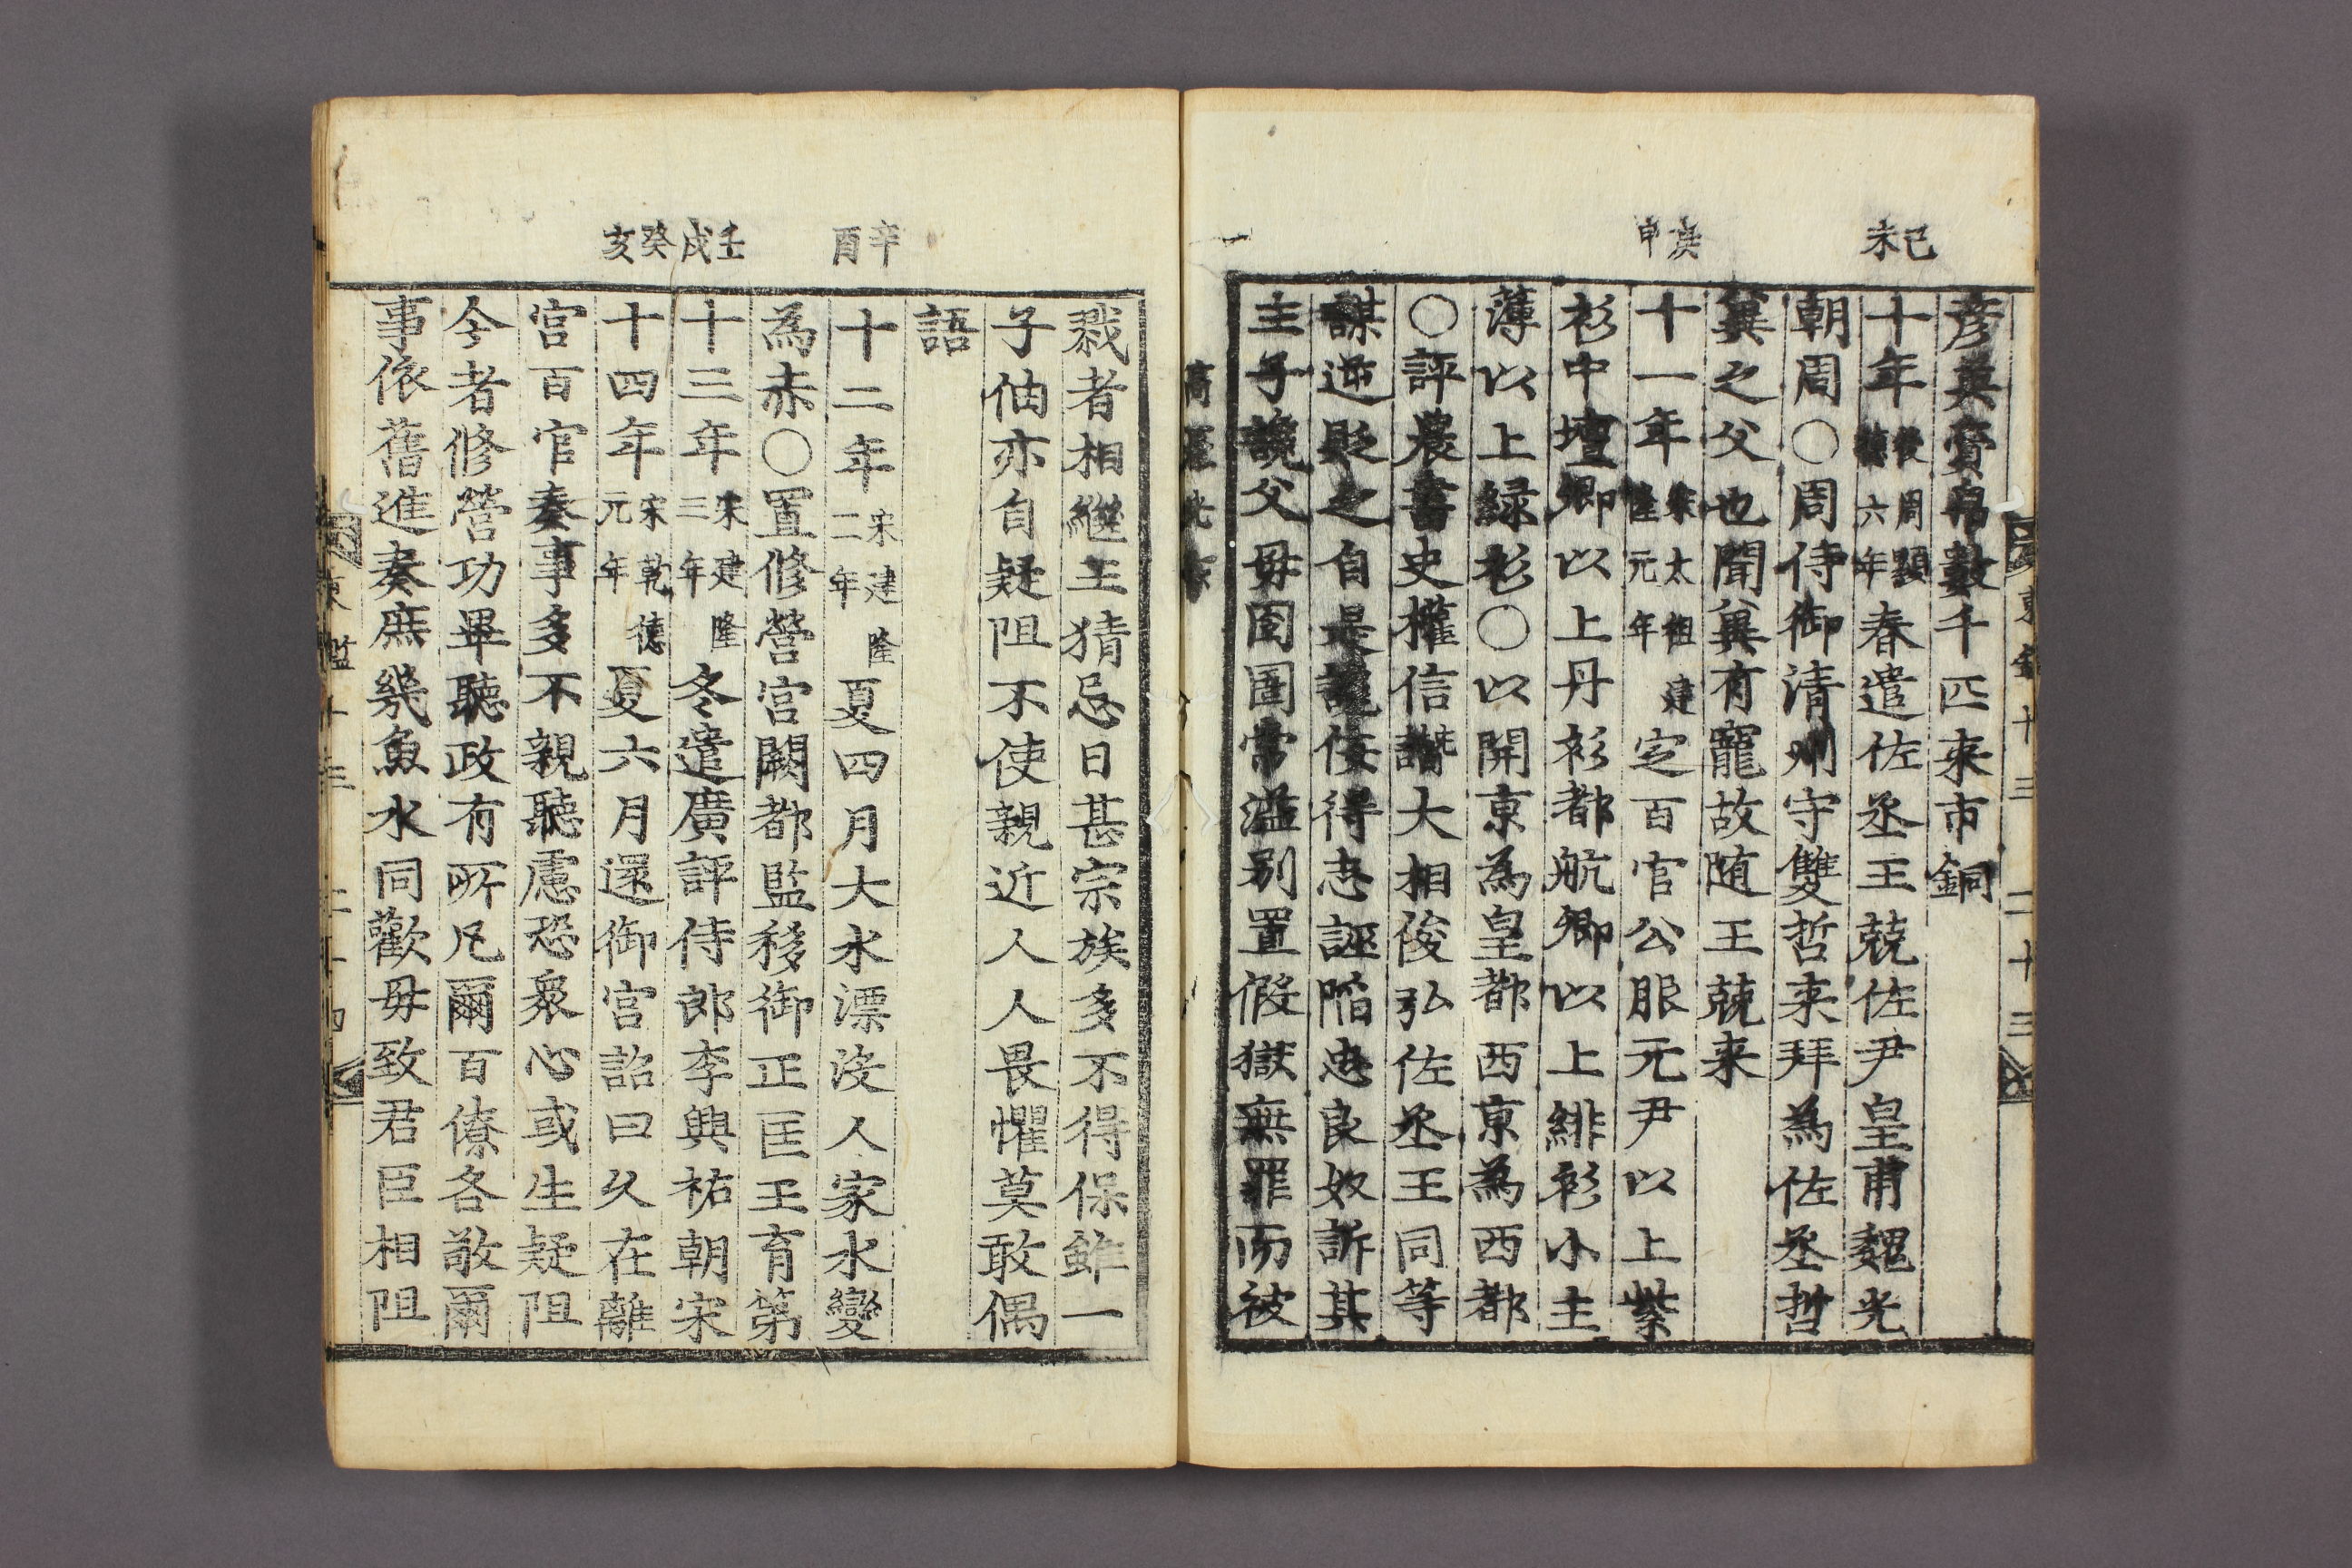 己未
庚申
彦英賫帛數千匹来市銅
十年後周顯德六年春遣佐丞王兢佐尹皇甫魏光
朝周○周侍御清州守雙哲来拜為佐丞哲
兾之父也聞兾有寵故随王兢来
十一年宋太祖建隆元年定百官公服元尹以上紫
衫中壇卿以上丹衫都航卿以上緋衫小主
薄以上緑衫○以開京為皇都西京為西都
○評農書史權信譖大相俊弘佐丞王同等
謀逆貶之自是讒侫得志誣陷忠良奴訴其
主子讒父毋囹圄常溢别置假獄無罪而被
高麗光宗
東鑑十三 二十三
辛酉
壬戌
癸亥
戮者相繼王猜忌日甚宗族多不得保雖一
子伷亦自疑阻不使親近人人畏懼莫敢偶
語
十二年宋建隆二年夏四月大水漂沒人家水變
為赤○置修營宫闕都監移御正匡王育第
十三年宋建隆三年冬遣廣評侍郎李興祐朝宋
十四年宋乾德元年夏六月還御宫詔曰久在離
宫百官奏事多不親聽慮恐衆心或生疑阻
今者修營功畢聽政有所凡爾百僚各敬爾
事依舊進奏庶幾魚水同歡毋致君臣相阻
東鑑十三 二十四